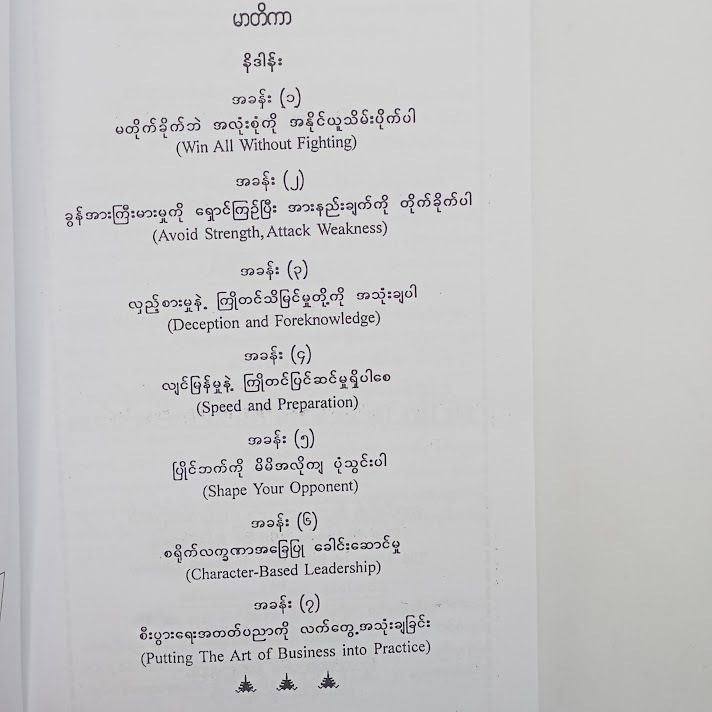 မာတိကာ
နိဒါန်း
အခန်း (၁)
မတိုက်ခိုက်ဘဲ အလုံးစုံကို အနိုင်ယူသိမ်းပိုက်ပါ
(Win All Without Fighting)
အခန်း (၂)
ခွန်အားကြီးမားမှုကို ရှောင်ကြဉ်ပြီး အားနည်းချက်ကို တိုက်ခိုက်ပါ
(Avoid Strength, Attack Weakness)
အခန်း (၃)
လှည့်စားမှုနဲ့ ကြိုတင်သိမြင်မှုတို့ကို အသုံးချပါ
(Deception and Foreknowledge)
အခန်း (၄)
လျင်မြန်မှုနဲ့ ကြိုတင်ပြင်ဆင်မှုရှိပါစေ
(Speed and Preparation)
အခန်း (၅)
ပြိုင်ဘက်ကို မိမိအလိုကျ ပုံသွင်းပါ
(Shape Your Opponent)
အခန်း (၆)
စရိုက်လက္ခဏာအခြေပြု ခေါင်းဆောင်မှု
(Character-Based Leadership)
အခန်း (၇)
စီးပွားရေးအတတ်ပညာကို လက်တွေ့အသုံးချခြင်း
(Putting The Art of Business into Practice)